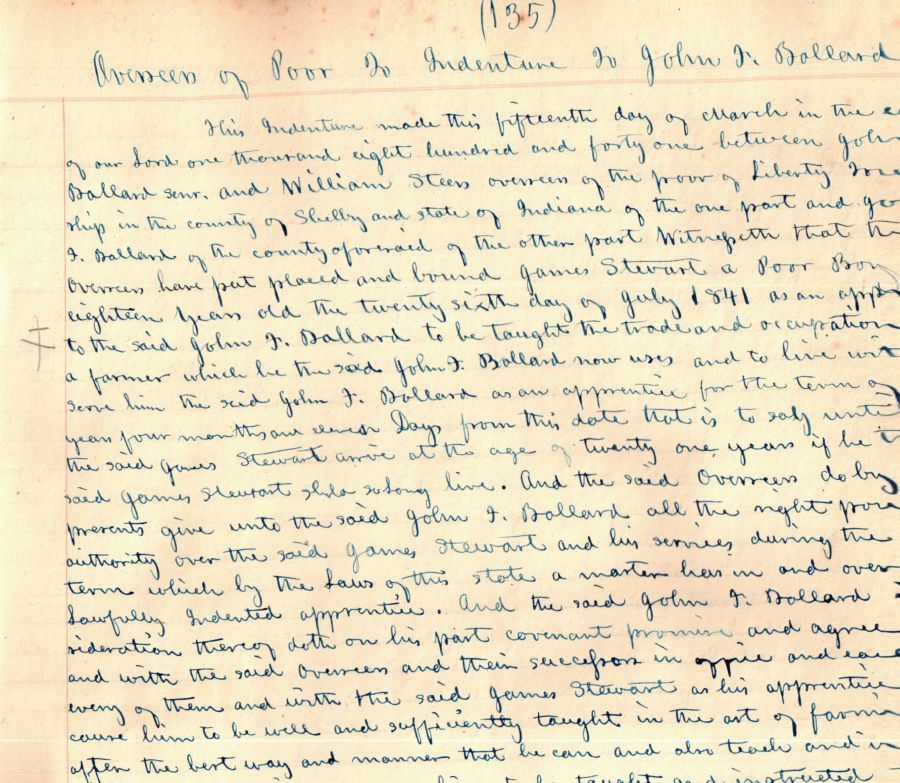 (135)
Overseers of Poor To Indenture To John F. Ballard
This Indenture made this fifteenth day of March in the
of our Lord one thousand eight hundred and forty one between John
Ballard senr. and William Steers overseers of the poor of Liberty
ship in the county of Shelby and state of Indiana of the one part and
F. Ballard of the county aforesaid of the other part Witnesseth that
Overseers have put placed and bound James Stewart a Poor Boy
eighteen years old the twenty sixth day of July 1841 as an
to the said John F. Ballard to be taught the trade and occupation
a farmer which he the said John F. Ballard now uses and to live
serve him the said John F. Ballard as an apprentice for the term of
years four months and eleven Days from this date that is to say until
the said James Stewart arive at the age of twenty one years if he
said James Stewart so long live. And the said Overseers do by
presents give unto the said John F. Ballard all the right
authority over the said James Stewart and his services during the
term which by the Laws of this state a master has in and over
Lawfully Indented apprentice. And the said John F. Ballard
sideration thereof doth on his part covenant promise and agree
and with the said Overseers and their successors in office and
every of them and with the said James Stewart as his apprentice
cause him to be well and sufficiently taught in the art of
after the best way and manner that he can and also teach and
to be taught and instructed